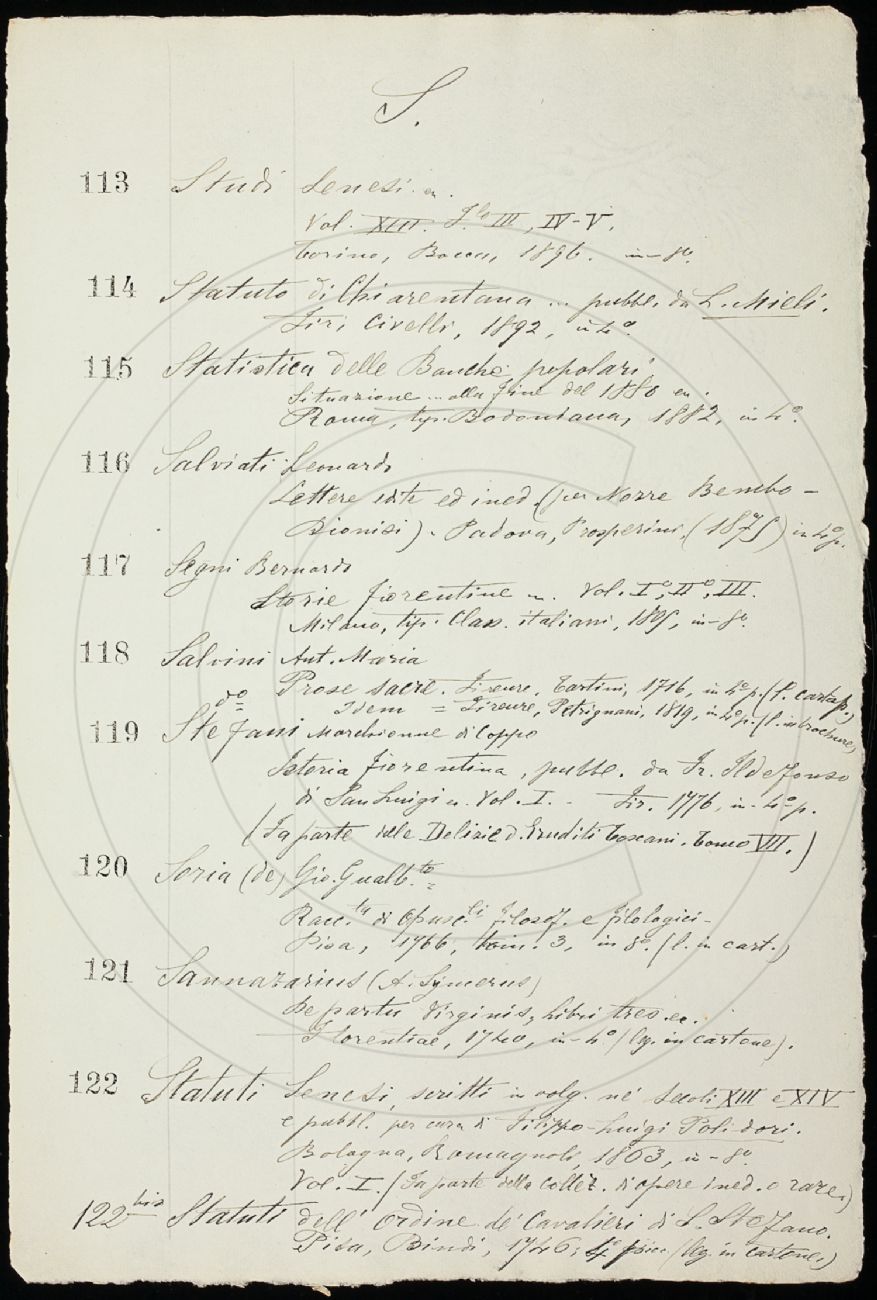 S.
113 Studi Senesi ec.
Vol. XIII. F.lo III, IV-V.
Torino, Bocca, 1896. in-8º.
114 Statuto di Chiarentana ... pubbl. da L. Mieli.
Fir., Civelli, 1892, in 4º.
115 Statistica delle Banche popolari
Situazione ... alla fine del 1880 ec.
Roma, tip. Bodoniana, 1882, in 4º.
116 Salviati Leonardo
Lettere edite ed ined. (per Nozze Bembo-
Bionisi). Padova, Prosperini, (1875) in 4º p.
117 Segni Bernardo
Storie fiorentine Vol. Iº, IIº, III.
Milano, tip. Class. italiani, 1805, in-8º.
118 Salvini Ant. Maria
Prose sacre. Firenze, Tartini, 1716, in 4º p. (l. cartap.)
dº = Idem = Firenze, Petrignani, 1819, in 4º p. (l. in brochure)
119 Stefani Marchionne di Coppo
Istoria fiorentina, pubbl. da Fr. Ildefonso
di San Luigi Vol. I. - Fir. 1776, in-4º p.
(Fa parte delle Delizie d. Eruditi toscani. Tomo VII.)
120 Soria (de) Gio. Gualb.to =
Racc.ta di Opusc.li filosof. e filologici-
Pisa, 1766, tom. 3, in 8º. (l. in cart.)
121 Sannazarius (A. Syncerus)
De partu Virginis, Libri tres ec.
Florentiae, 1740, in-4º (leg. in cartone).
122 Statuti Senesi, scritti in volg. ne' Secoli XIII e XIV
e pubbl. per cura di Filippo-Luigi Polidori.
Bologna, Romagnoli, 1863, in-8º
Vol. I. (Fa parte della Collez. di opere ined. o rare.)
122 bis Statuti dell' Ordine de' Cavalieri di S. Stefano.
Pisa, Bindi, 1746, 4º (leg. in cartone.)